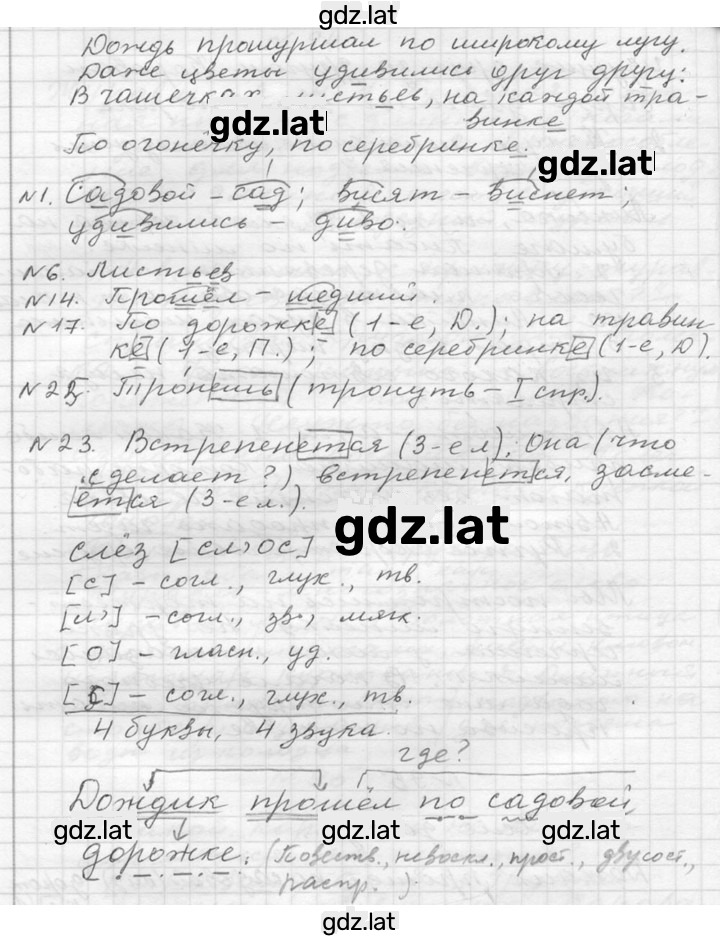 gdz.lat
Дождь прошуршал по широкому лугу.
Даже цветы удивились друг другу:
В чашечках, листьев, на каждой тра-
винке
gdz.lat
По огонёчку, по серебринке.
gdz.lat
№1. Садовой – сад; висят – виснет;
удивились – диво.
№6. Листьев
№14. Прошёл – шедший.
№17. По дорожке (1-е, Д.); на травин-
ке (1-е, П.); по серебринке (1-е, Д).
№22. Тронешь (тронуть – I спр.).
№23. Встрепенется (3-е л), Она (что
сделает?) встрепенется, засме-
ётся (3-е л.).
gdz.lat
слёз [сл'ос]
[с] – согл., глух., тв.
[л'] – согл., зв., мягк.
[о] – гласн., уд.
[с] – согл., глух., тв.
4 буквы, 4 звука.
где?
Дождик прошёл по садовой
gdz.lat gdz.lat gdz.lat
дорожке. (Повеств., невоскл., прост., двусост.,
распр.)
gdz.lat